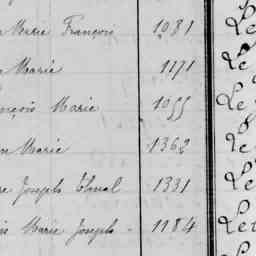 Marie François 1081 Le
Marie 1171 Le
ançois Marie 1055 Le
n Marie 1362 Le
re Joseph 1331 Le
ie Marie Joseph - 1184 Let